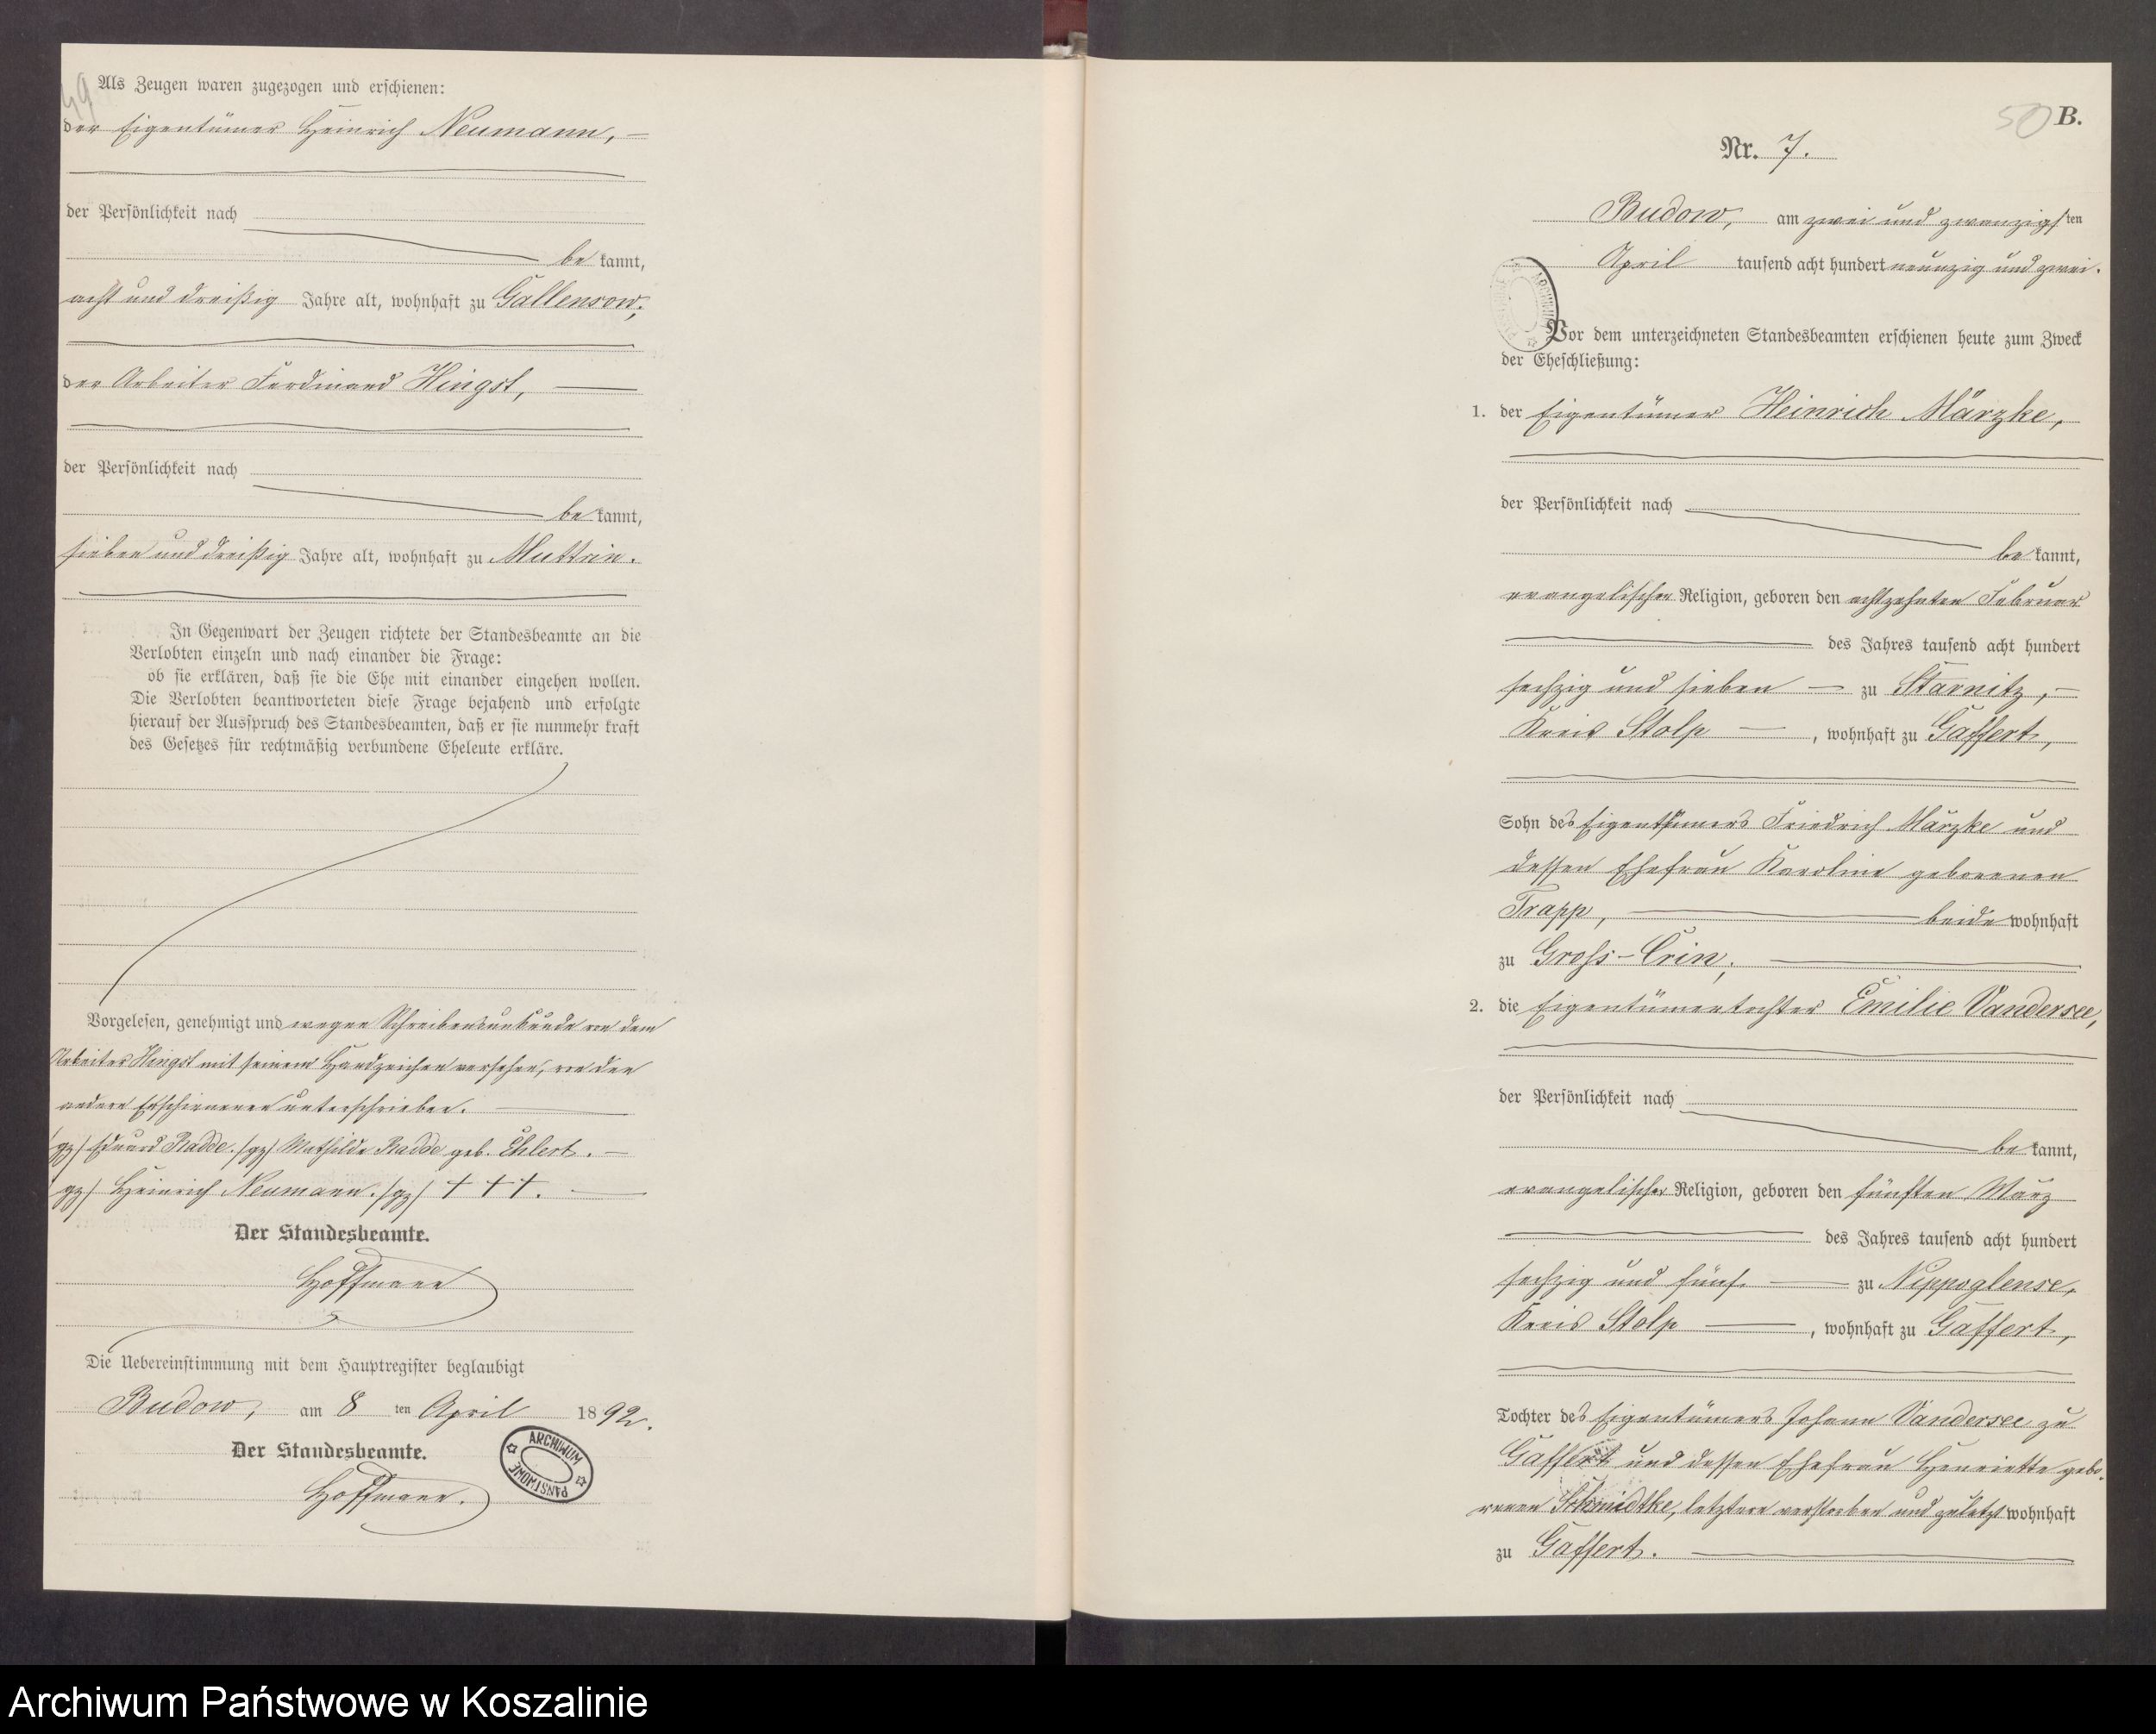 49
Als Zeugen waren zugezogen und erschienen:
der Eigentümer Heinrich Neumann,
der Persönlichkeit nach
be kannt,
acht und dreißig Jahre alt, wohnhaft zu Gallensow;
der Arbeiter Ferdinand Hingst,
der Persönlichkeit nach
be kannt,
sieben und dreißig Jahre alt, wohnhaft zu Muttrin.
In Gegenwart der Zeugen richtete der Standesbeamte an die
Verlobten einzeln und nach einander die Frage:
ob sie erklären, daß sie die Ehe mit einander eingehen wollen.
Die Verlobten beantworteten diese Frage bejahend und erfolgte
hierauf der Ausspruch des Standesbeamten, daß er sie nunmehr kraft
des Gesetzes für rechtmäßig verbundene Eheleute erkläre.
Vorgelesen, genehmigt und wegen Schreibensunkunde von dem
Arbeiter Hingst mit seinem Handzeichen versehen, von den
andern Erschienenen unterschrieben.
/gz/ Eduard Radde. /gz/ Mathilde Radde geb. Ehlert.
/gz/ Heinrich Neumann. /gz/ † † †.
Der Standesbeamte.
Hoffmann
Die Uebereinstimmung mit dem Hauptregister beglaubigt
Budow, am 8 ten April 1892.
Der Standesbeamte.
Hoffmann.
ARCHIWUM PAŃSTWOWE
50 B.
Nr. 7.
Budow, am zwei und zwanzigsten
April tausend acht hundert neunzig und zwei.
Vor dem unterzeichneten Standesbeamten erschienen heute zum Zweck
der Eheschließung:
1. der Eigentümer Heinrich Märzke,
der Persönlichkeit nach
be kannt,
evangelischer Religion, geboren den achtzehnten Februar
des Jahres tausend acht hundert
sechzig und sieben zu Starnitz,
Kreis Stolp, wohnhaft zu Gaffert,
Sohn des Eigenthümers Friedrich Märzke und
dessen Ehefrau Karoline geborenen
Trapp, beide wohnhaft
zu Gross-Crin;
2. die Eigentümertochter Emilie Vandersee,
der Persönlichkeit nach
be kannt,
evangelischer Religion, geboren den fünften März
des Jahres tausend acht hundert
sechzig und fünf zu Nippoglense,
Kreis Stolp, wohnhaft zu Gaffert,
Tochter des Eigentümers Johann Vandersee zu
Gaffert und dessen Ehefrau Henriette gebo-
renen Schmidtke, letztere verstorben und zuletzt wohnhaft
zu Gaffert.
Archiwum Państwowe w Koszalinie